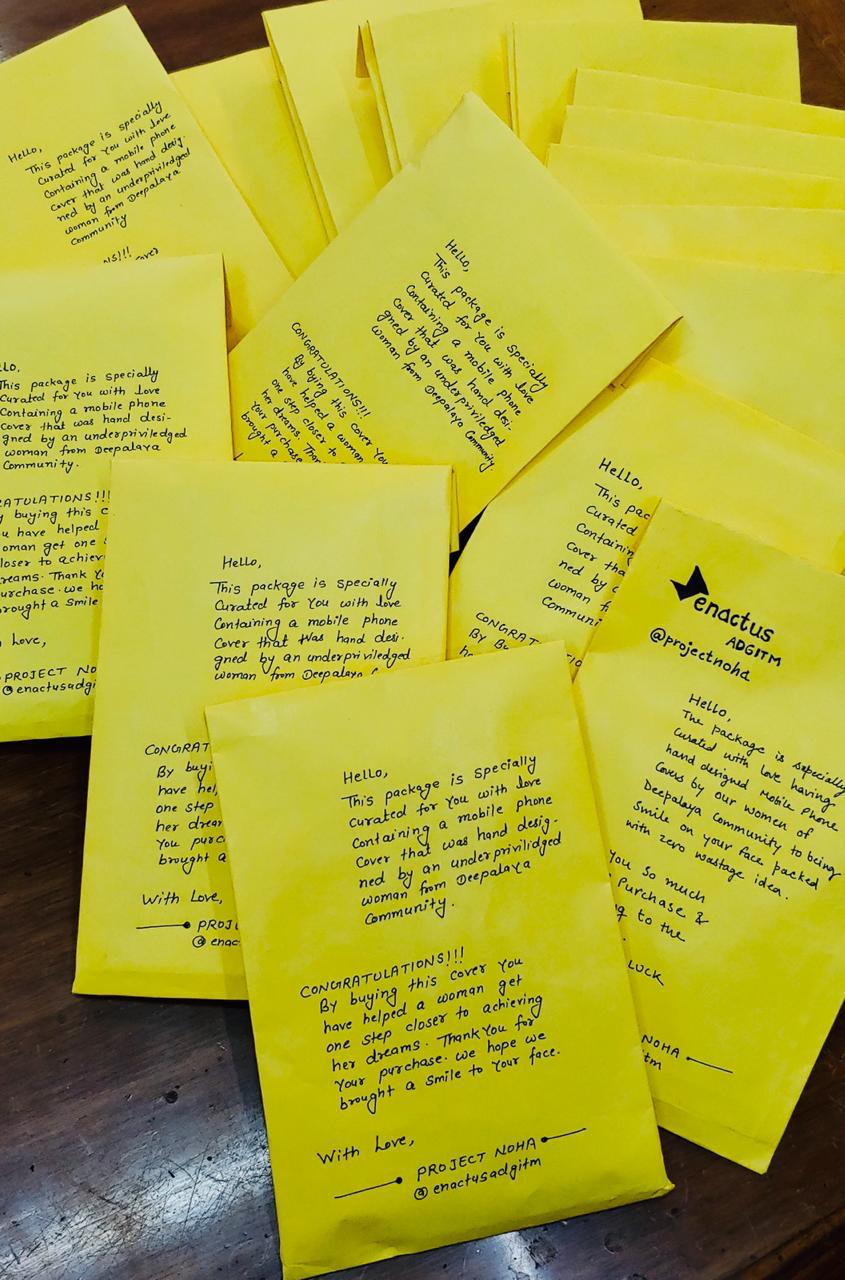 Hello,
This package is specially
Curated for You with love
Containing a mobile phone
cover that was hand desig-
ned by an underpriviledged
woman from Deepalaya
Community
NS!!!
cover
Hello,
This package is specially
Curated for You with love
Containing a mobile phone
Cover that was hand desi-
gned by an underpriviledged
woman from Deepalaya Community.
CONGRATULATIONS!!!
By buying this cover You
have helped a woman
one step closer to
her dreams. Than
Your purchase
brought a
llo,
This package is specially
Curated for You with love
Containing a mobile phone
cover that was hand desi-
gned by an underpriviledged
woman from Deepalaya
Community.
RATULATIONS!!!
y buying this c
ou have helped
oman get one s
loser to achiev
reams. Thank Yo
urchase. we ho
rought a smile
h Love,
PROJECT NO
@enactusadgi
Hello,
This package is specially
Curated for You with love
Containing a mobile phone
Cover that was hand desi-
gned by an underpriviledged
woman from Deepalaya
CONGRAT
By buyi
have hel
one step
her drea
You purc
brought a
With Love,
PROJ
@enac
Hello,
This pac
Curated
Containin
cover tha
ned by
woman f
Communi
CONGRAT
By Bu
enactus
ADGITM
@projectnoha
Hello,
The package is especially
curated with love having
hand designed Mobile Phone
Covers by our women of
Deepalaya Community to being
Smile on your face packed
with zero wastage idea.
You so much
Purchase &
g to the
LUCK
NOHA
tm
Hello,
This package is specially
Curated for You with love
Containing a mobile phone
Cover that was hand desig-
ned by an underprivilidged
woman from Deepalaya
Community.
CONGRATULATIONS!!!
By buying this cover You
have helped a woman get
one step closer to achieving
her dreams. Thank You for
Your purchase. we hope we
brought a smile to Your face.
With Love,
PROJECT NOHA
@enactusadgitm